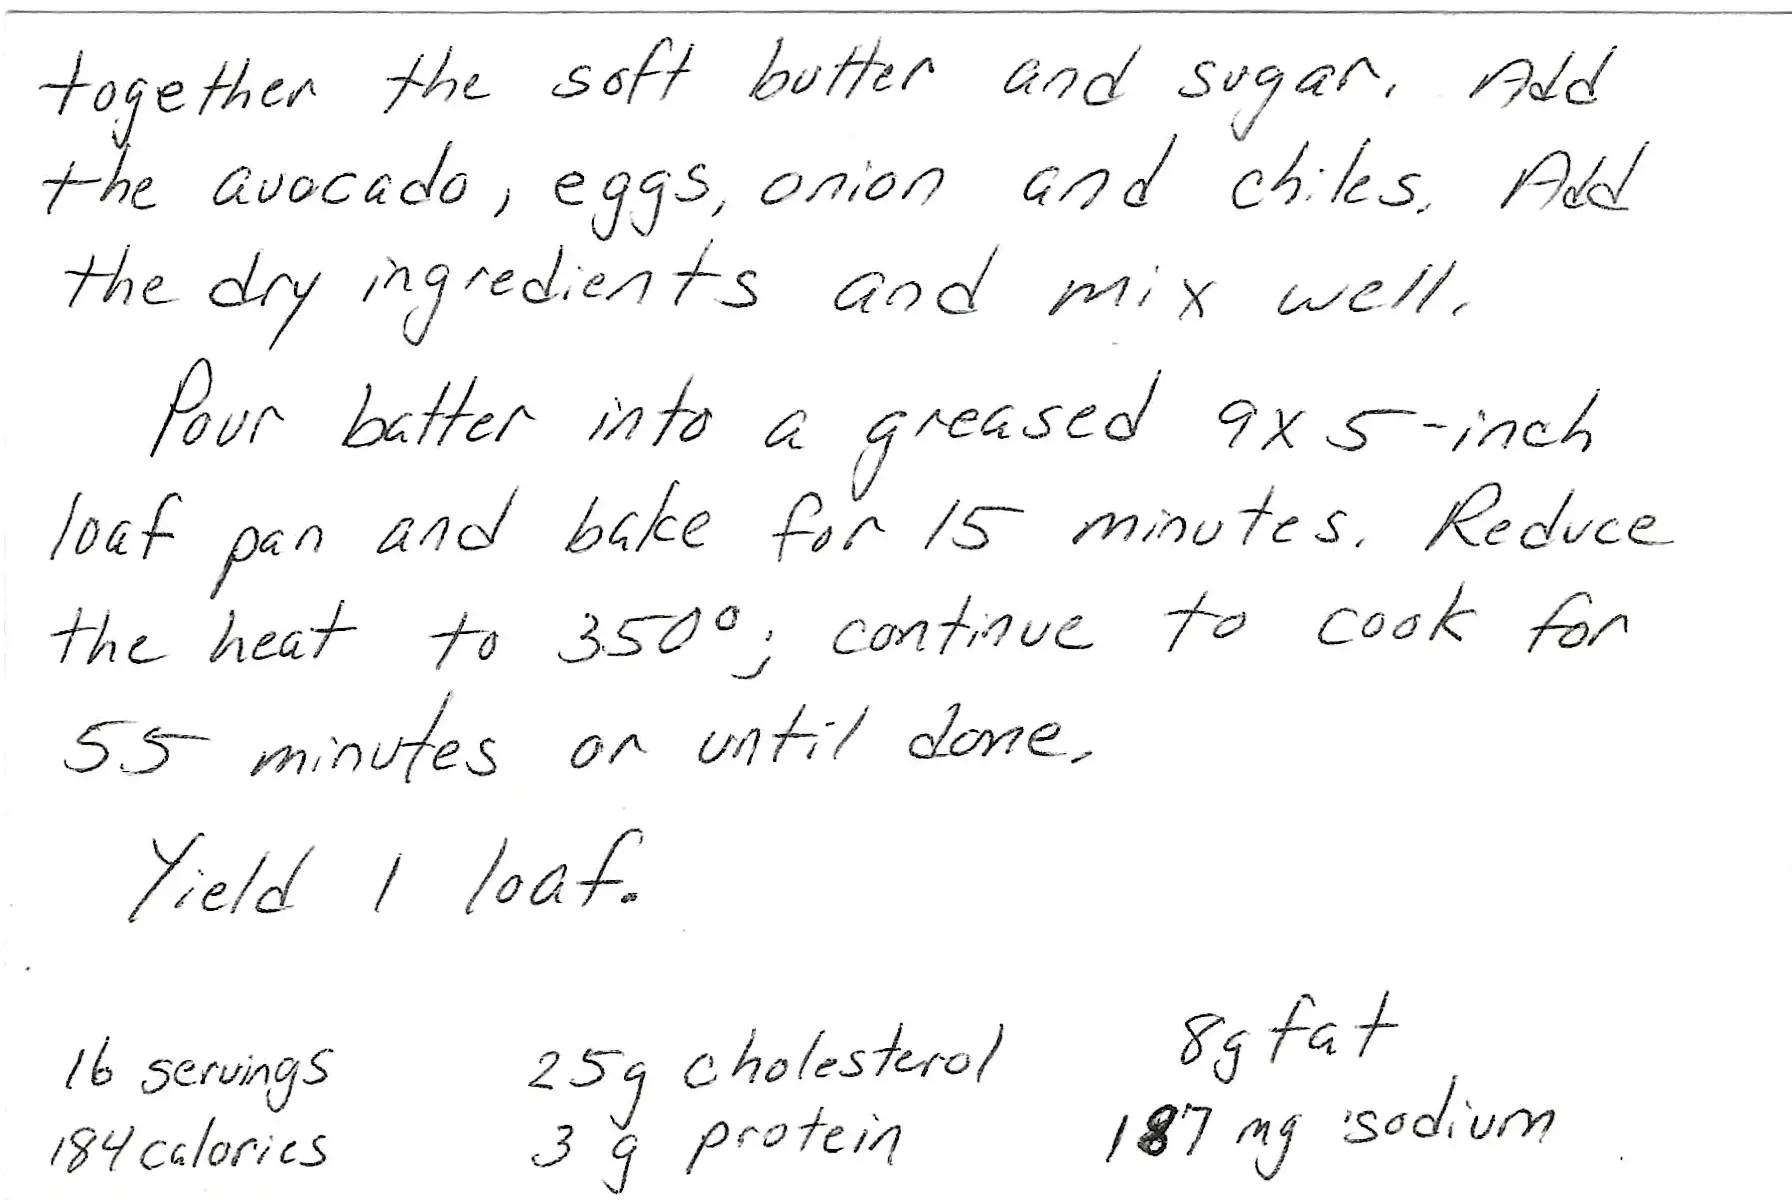 together the soft butter and sugar. Add
the avocado, eggs, onion and chiles. Add
the dry ingredients and mix well.
Pour batter into a greased 9x5-inch
loaf pan and bake for 15 minutes. Reduce
the heat to 350°; continue to cook for
55 minutes or until done.
Yield 1 loaf.
16 servings 25g cholesterol 8g fat
184 calories 3g protein 187 mg sodium